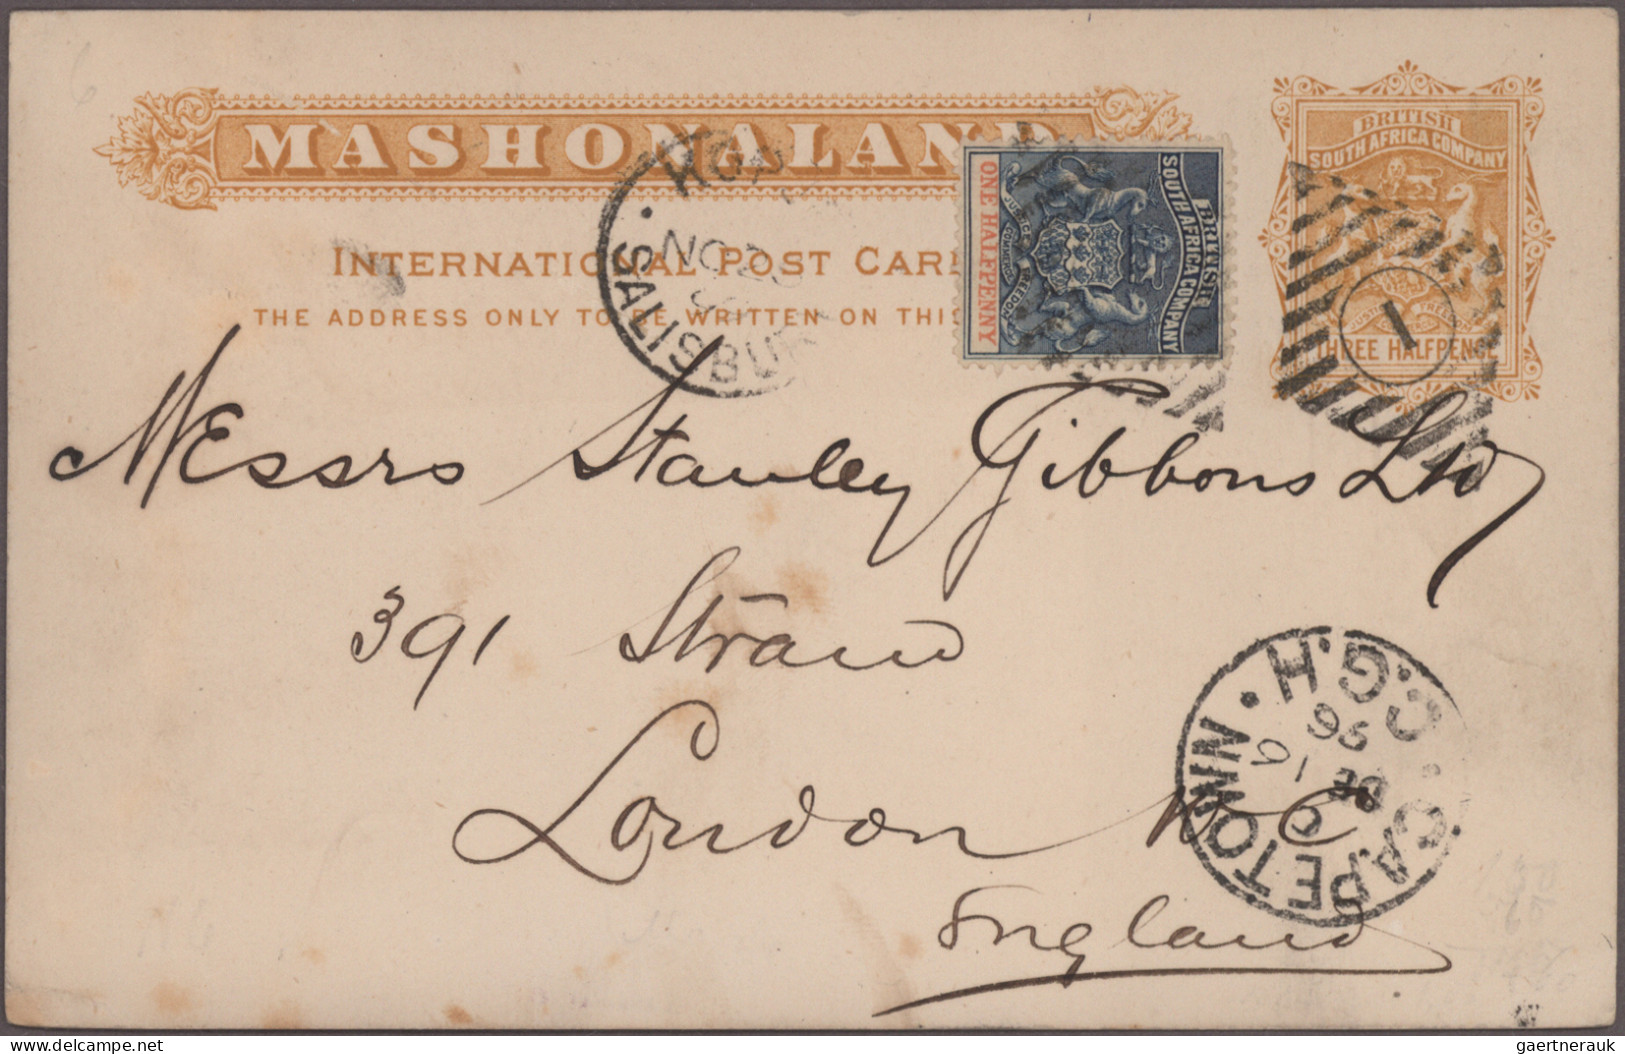 MASHONALAND
INTERNATIONAL POST CARD
THE ADDRESS ONLY TO BE WRITTEN ON THIS
BRITISH
SOUTH AFRICA COMPANY
JUSTICE FREEDOM
THREE HALFPENCE
1
BRITISH
SOUTH AFRICA COMPANY
JUSTICE COMMERCE FREEDOM
ONE HALFPENNY
NO 28
SALISBURY
Messrs Stanley Gibbons Ld
391 Strand
London W C
England
CAPETOWN · C.G.H
DE 16
96
gaertnerauk